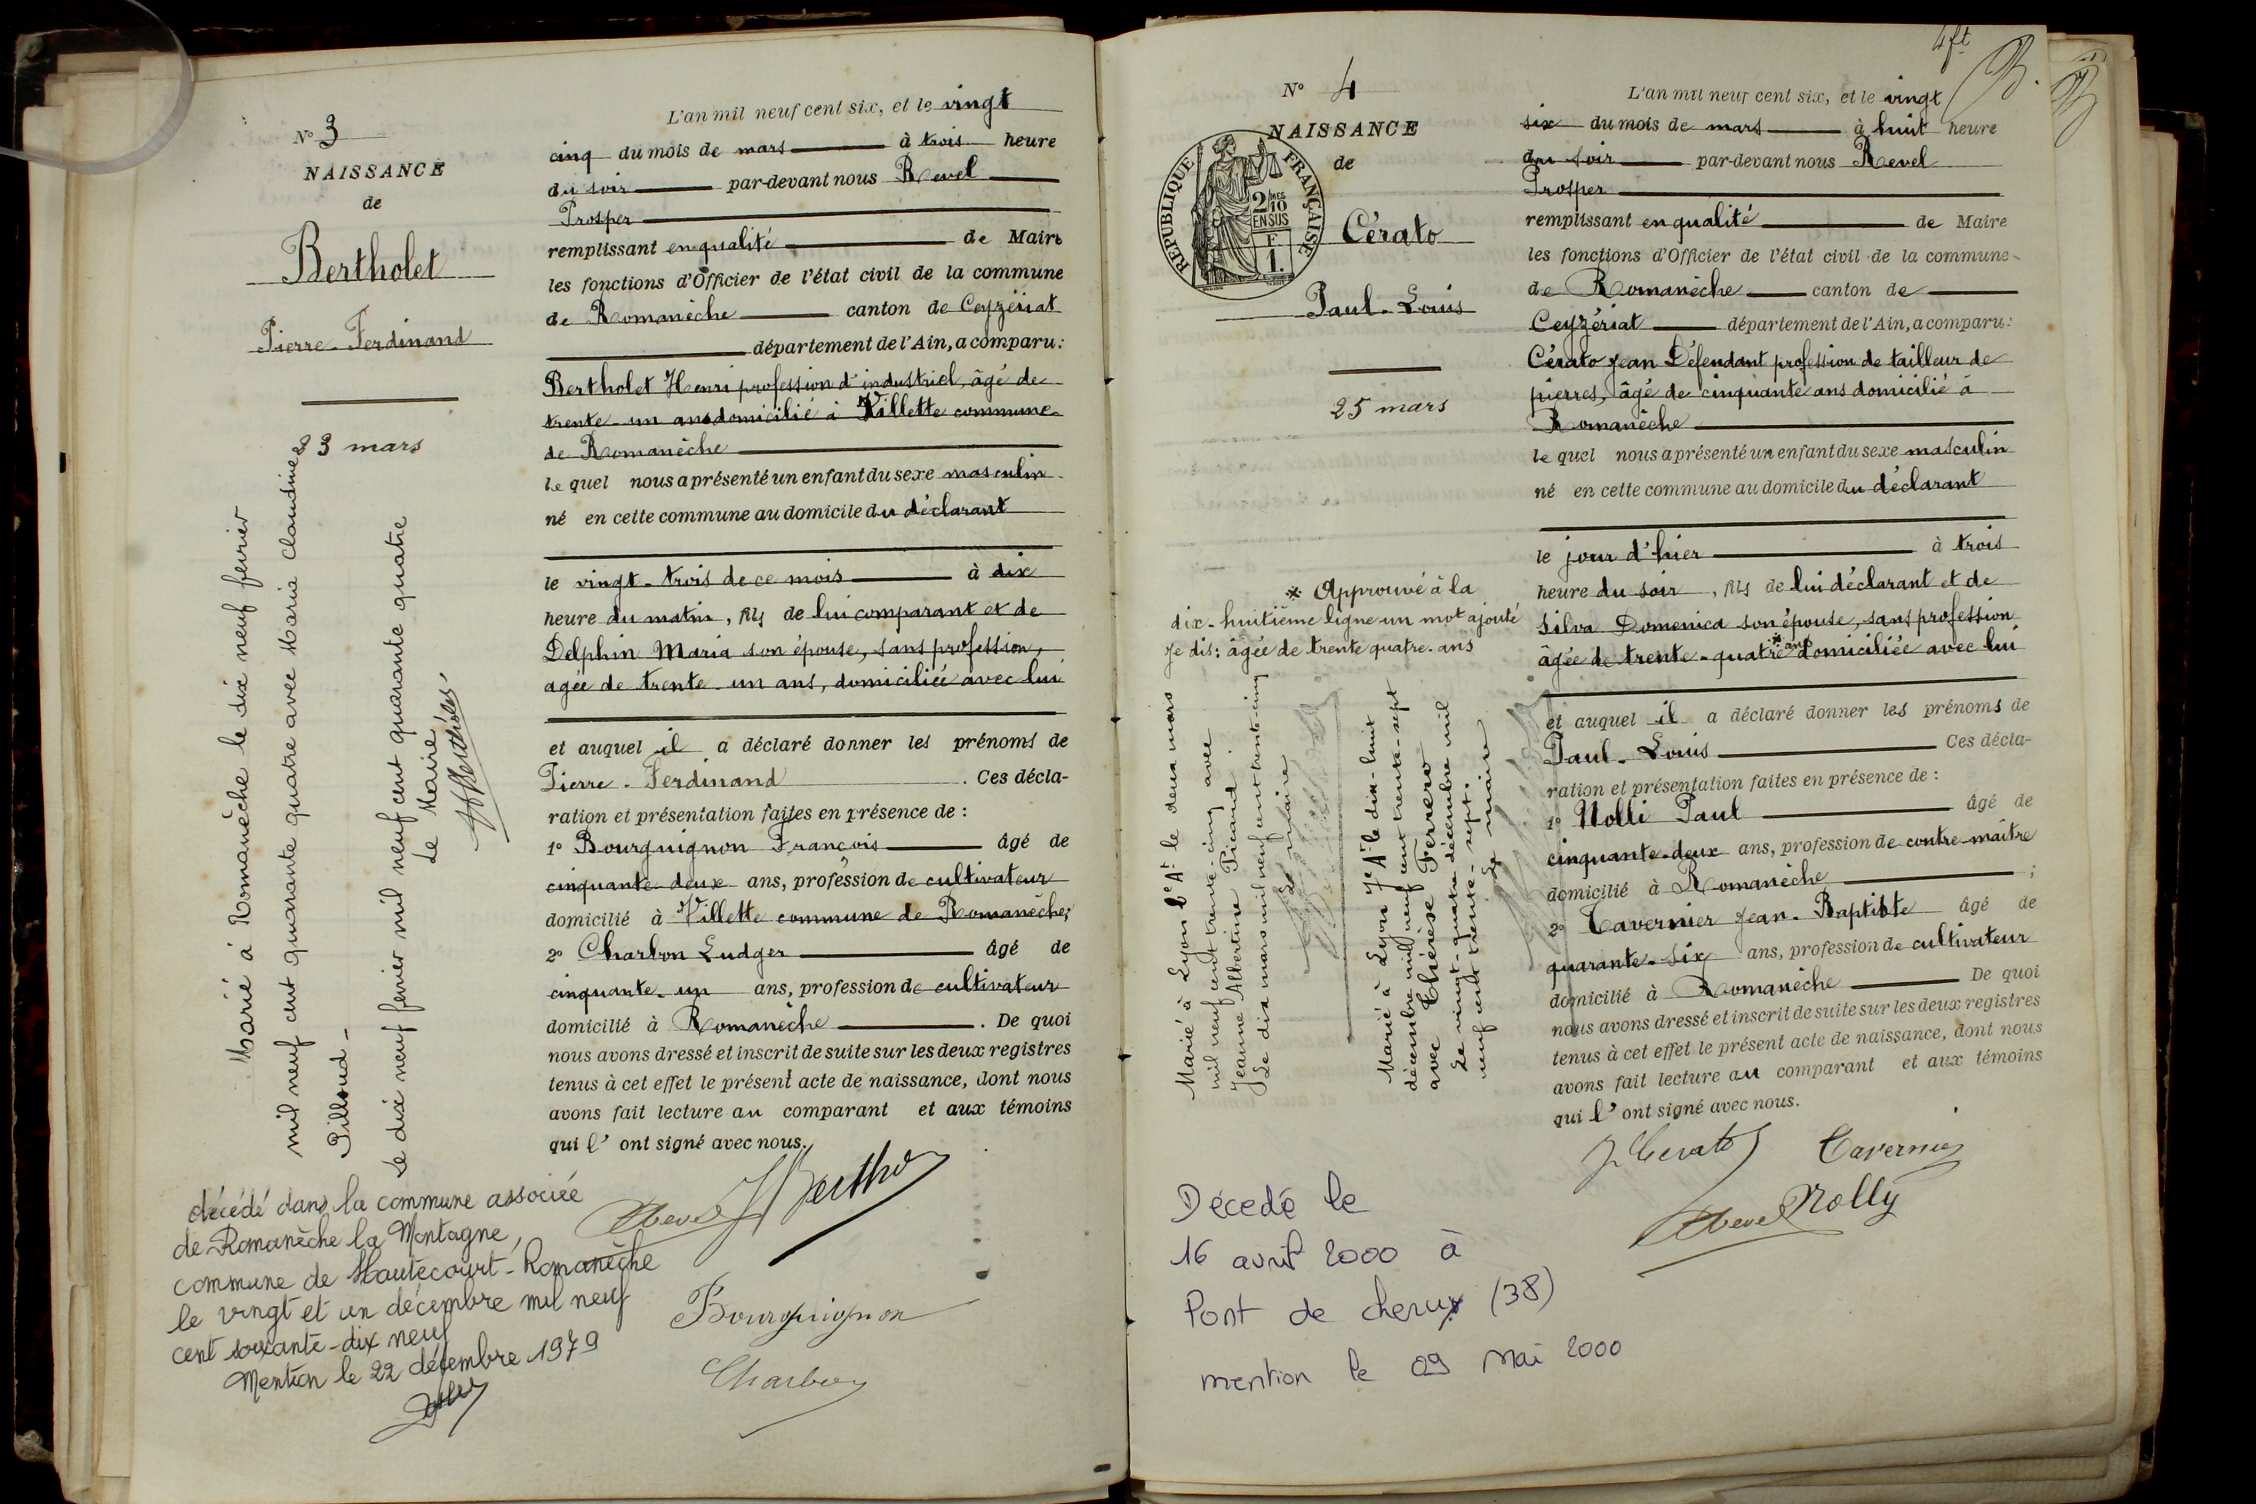 N° 3
NAISSANCE
de
Bertholet
Pierre-Ferdinand
23 mars
L'an mil neuf cent six, et le vingt
cinq du mois de mars à trois heure
du soir par-devant nous Revel
Prosper
remplissant en qualité de Maire
les fonctions d'Officier de l'état civil de la commune
de Romanèche canton de Ceyzériat
département de l'Ain, a comparu:
Bertholet Henri profession d'industriel, âgé de
trente-un ans domicilié à Villette commune
de Romanèche
lequel nous a présenté un enfant du sexe masculin
né en cette commune au domicile du déclarant
le vingt-trois de ce mois à dix
heure du matin, fils de lui comparant et de
Delphin Maria son épouse, sans profession,
agée de trente-un ans, domiciliée avec lui
et auquel il a déclaré donner les prénoms de
Pierre-Ferdinand. Ces décla-
ration et présentation faites en présence de :
1° Bourguignon François âgé de
cinquante-deux ans, profession de cultivateur
domicilié à Villette commune de Romanèche;
2° Charbon Ludger âgé de
cinquante-un ans, profession de cultivateur
domicilié à Romanèche. De quoi
nous avons dressé et inscrit de suite sur les deux registres
tenus à cet effet le présent acte de naissance, dont nous
avons fait lecture au comparant et aux témoins
qui l'ont signé avec nous.
Marié à Romanèche le dix neuf fevrier
mil neuf cent quarante quatre avec Marie Claudine
Pilloud-
Le dix neuf fevrier mil neuf cent quarante quatre
Le Maire,
décédé dans la commune associée
de Romanèche la Montagne,
commune de Hautecourt-Romanèche
le vingt et un décembre mil neuf
cent soixante-dix neuf
Mention le 22 décembre 1979
Revel
Bourguignon
Charbon
4 ft
N° 4
NAISSANCE
de
REPUBLIQUE FRANÇAISE
2/10 MES
EN SUS
F.
1.
Cérato
Paul-Louis
25 mars
L'an mil neuf cent six, et le vingt
six du mois de mars à huit heure
du soir par-devant nous Revel
Prosper
remplissant en qualité de Maire
les fonctions d'Officier de l'état civil de la commune
de Romanèche canton de
Ceyzériat département de l'Ain, a comparu:
Cérato Jean Défendant profession de tailleur de
pierres, âgé de cinquante ans domicilié à
Romanèche
lequel nous a présenté un enfant du sexe masculin
né en cette commune au domicile du déclarant
le jour d'hier à trois
heure du soir, fils de lui déclarant et de
Silva Domenica son épouse, sans profession
âgée de trente-quatre * ans domiciliée avec lui
et auquel il a déclaré donner les prénoms de
Paul-Louis Ces décla-
ration et présentation faites en présence de :
1° Nolli Paul âgé de
cinquante-deux ans, profession de contre-maître
domicilié à Romanèche ;
2° Tavernier Jean-Baptiste âgé de
quarante-six ans, profession de cultivateur
domicilié à Romanèche De quoi
nous avons dressé et inscrit de suite sur les deux registres
tenus à cet effet le présent acte de naissance, dont nous
avons fait lecture au comparant et aux témoins
qui l'ont signé avec nous.
* Approuvé à la
dix-huitième ligne un mot ajouté
Je dis: âgée de trente quatre-ans
Marié à Lyon 6e At le deux mars
mil neuf cent trente-cinq avec
Jeanne Albertine Picaud.
Le dix mars mil neuf cent trente-cinq
Le maire
Marié à Lyon 7e Ar le dix-huit
décembre mil neuf cent trente-sept
avec Thérèse Ferrero
Le vingt-quatre décembre mil
neuf cent trente-sept.
Le maire
J Cerato Tavernier
Revel Nolly
Décedé le
16 avril 2000 à
Pont de cheruy (38)
mention le 09 Mai 2000